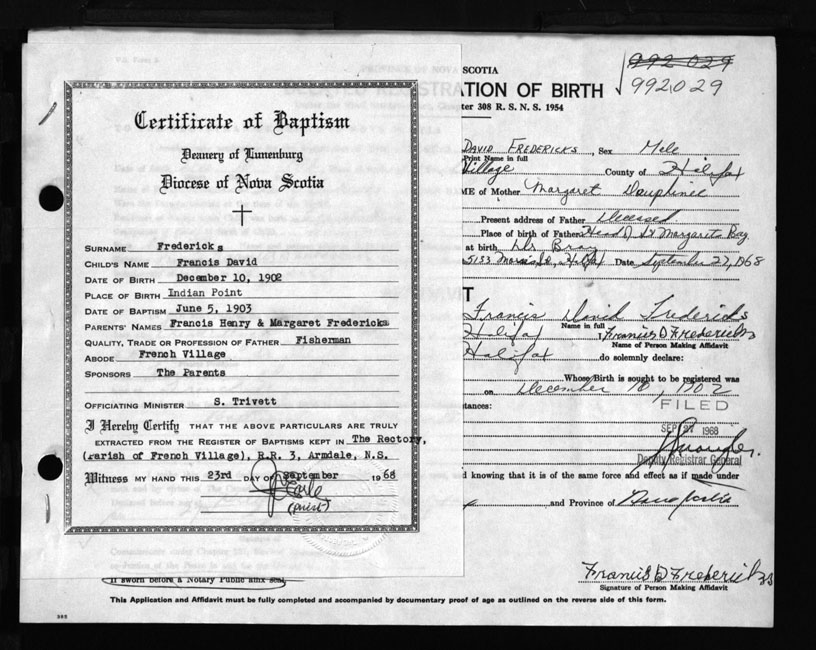 Certificate of Baptism
Deanery of Lunenburg
Diocese of Nova Scotia
SURNAME Fredericks
CHILD'S NAME Francis David
DATE OF BIRTH December 10, 1902
PLACE OF BIRTH Indian Point
DATE OF BAPTISM June 5, 1903
PARENTS' NAMES Francis Henry & Margaret Fredericks
QUALITY, TRADE OR PROFESSION OF FATHER Fisherman
ABODE French Village
SPONSORS The Parents
OFFICIATING MINISTER S. Trivett
I Hereby Certify THAT THE ABOVE PARTICULARS ARE TRULY
EXTRACTED FROM THE REGISTER OF BAPTISMS KEPT IN The Rectory,
(Parish of French Village), R.R. 3, Armdale, N.S.
Witness MY HAND THIS 23rd DAY OF September 1968
(priest)
SCOTIA
TION OF BIRTH
ter 308 R. S. N. S. 1954
992 029
992029
DAVID FREDERICKS, Sex Male
Print Name in full
Village County of Halifax
ME of Mother Margaret Dauphinee
Present address of Father Deceased
Place of birth of Father Head of St Margarets Bay
at birth
5153 Morris St, Halifax Date September 27, 1968
T
Francis David Fredericks
Name in full
Halifax I, Francis D Fredericks
Name of Person Making Affidavit
Halifax do solemnly declare:
Whose Birth is sought to be registered was
on December 10, 1902
tances:
FILED
SEP 27 1968
Deputy Registrar General
d knowing that it is of the same force and effect as if made under
, and Province of Nova Scotia
Francis D Fredericks
Signature of Person Making Affidavit
If sworn before a Notary Public affix seal
This Application and Affidavit must be fully completed and accompanied by documentary proof of age as outlined on the reverse side of this form.